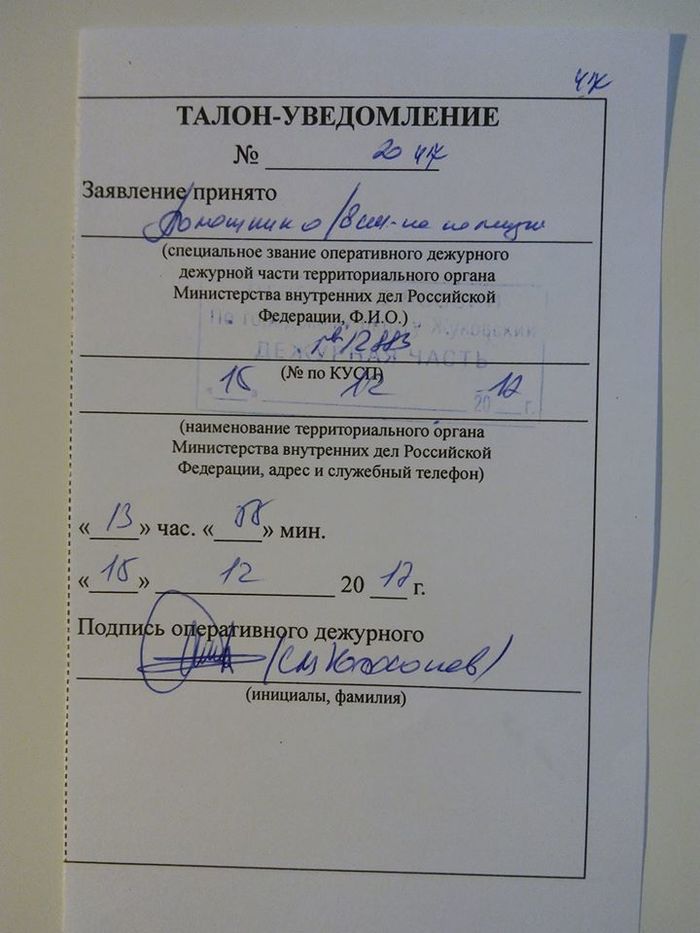 ТАЛОН-УВЕДОМЛЕНИЕ
№ 20
Заявление принято
(специальное звание оперативного дежурного
дежурной части территориального органа
Министерства внутренних дел Российской
Федерации, Ф.И.О.)
Жуковский
ДЕЖУРНАЯ ЧАСТЬ
(№ по КУСП)
15 12 20 г.
(наименование территориального органа
Министерства внутренних дел Российской
Федерации, адрес и служебный телефон)
«13» час. «55» мин.
«15» 12 20 г.
Подпись оперативного дежурного
(инициалы, фамилия)